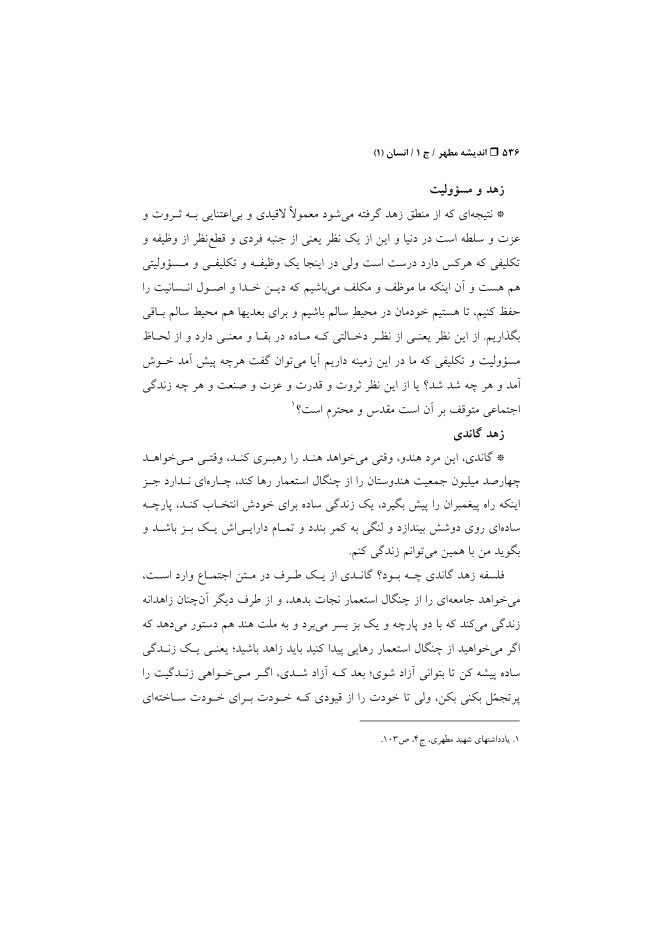 ۵۳۶ ❒ اندیشه مطهر / ج ۱ / انسان (۱)
زهد و مسؤولیت
* نتیجه‌ای که از منطق زهد گرفته می‌شود معمولاً لاقیدی و بی‌اعتنایی به ثروت و
عزت و سلطه است در دنیا و این از یک نظر یعنی از جنبه فردی و قطع‌نظر از وظیفه و
تکلیفی که هرکس دارد درست است ولی در اینجا یک وظیفه و تکلیفی و مسؤولیتی
هم هست و آن اینکه ما موظف و مکلف می‌باشیم که دین خدا و اصول انسانیت را
حفظ کنیم، تا هستیم خودمان در محیطِ سالم باشیم و برای بعدیها هم محیط سالم باقی
بگذاریم. از این نظر یعنی از نظر دخالتی که ماده در بقا و معنی دارد و از لحاظ
مسؤولیت و تکلیفی که ما در این زمینه داریم آیا می‌توان گفت هرچه پیش آمد خوش
آمد و هر چه شد شد؟ یا از این نظر ثروت و قدرت و عزت و صنعت و هر چه زندگی
اجتماعی متوقف بر آن است مقدس و محترم است؟۱
زهد گاندی
* گاندی، این مرد هندو، وقتی می‌خواهد هند را رهبری کند، وقتی می‌خواهد
چهارصد میلیون جمعیت هندوستان را از چنگال استعمار رها کند، چاره‌ای ندارد جز
اینکه راه پیغمبران را پیش بگیرد، یک زندگی ساده برای خودش انتخاب کند، پارچه
ساده‌ای روی دوشش بیندازد و لنگی به کمر بندد و تمام دارایی‌اش یک بز باشد و
بگوید من با همین می‌توانم زندگی کنم.
فلسفه زهد گاندی چه بود؟ گاندی از یک طرف در متن اجتماع وارد است،
می‌خواهد جامعه‌ای را از چنگال استعمار نجات بدهد، و از طرف دیگر آن‌چنان زاهدانه
زندگی می‌کند که با دو پارچه و یک بز بسر می‌برد و به ملت هند هم دستور می‌دهد که
اگر می‌خواهید از چنگال استعمار رهایی پیدا کنید باید زاهد باشید؛ یعنی یک زندگی
ساده پیشه کن تا بتوانی آزاد شوی؛ بعد که آزاد شدی، اگر می‌خواهی زندگیت را
پرتجمّل بکنی بکن، ولی تا خودت را از قیودی که خودت برای خودت ساخته‌ای
۱. یادداشتهای شهید مطهری، ج۴، ص۱۰۳.